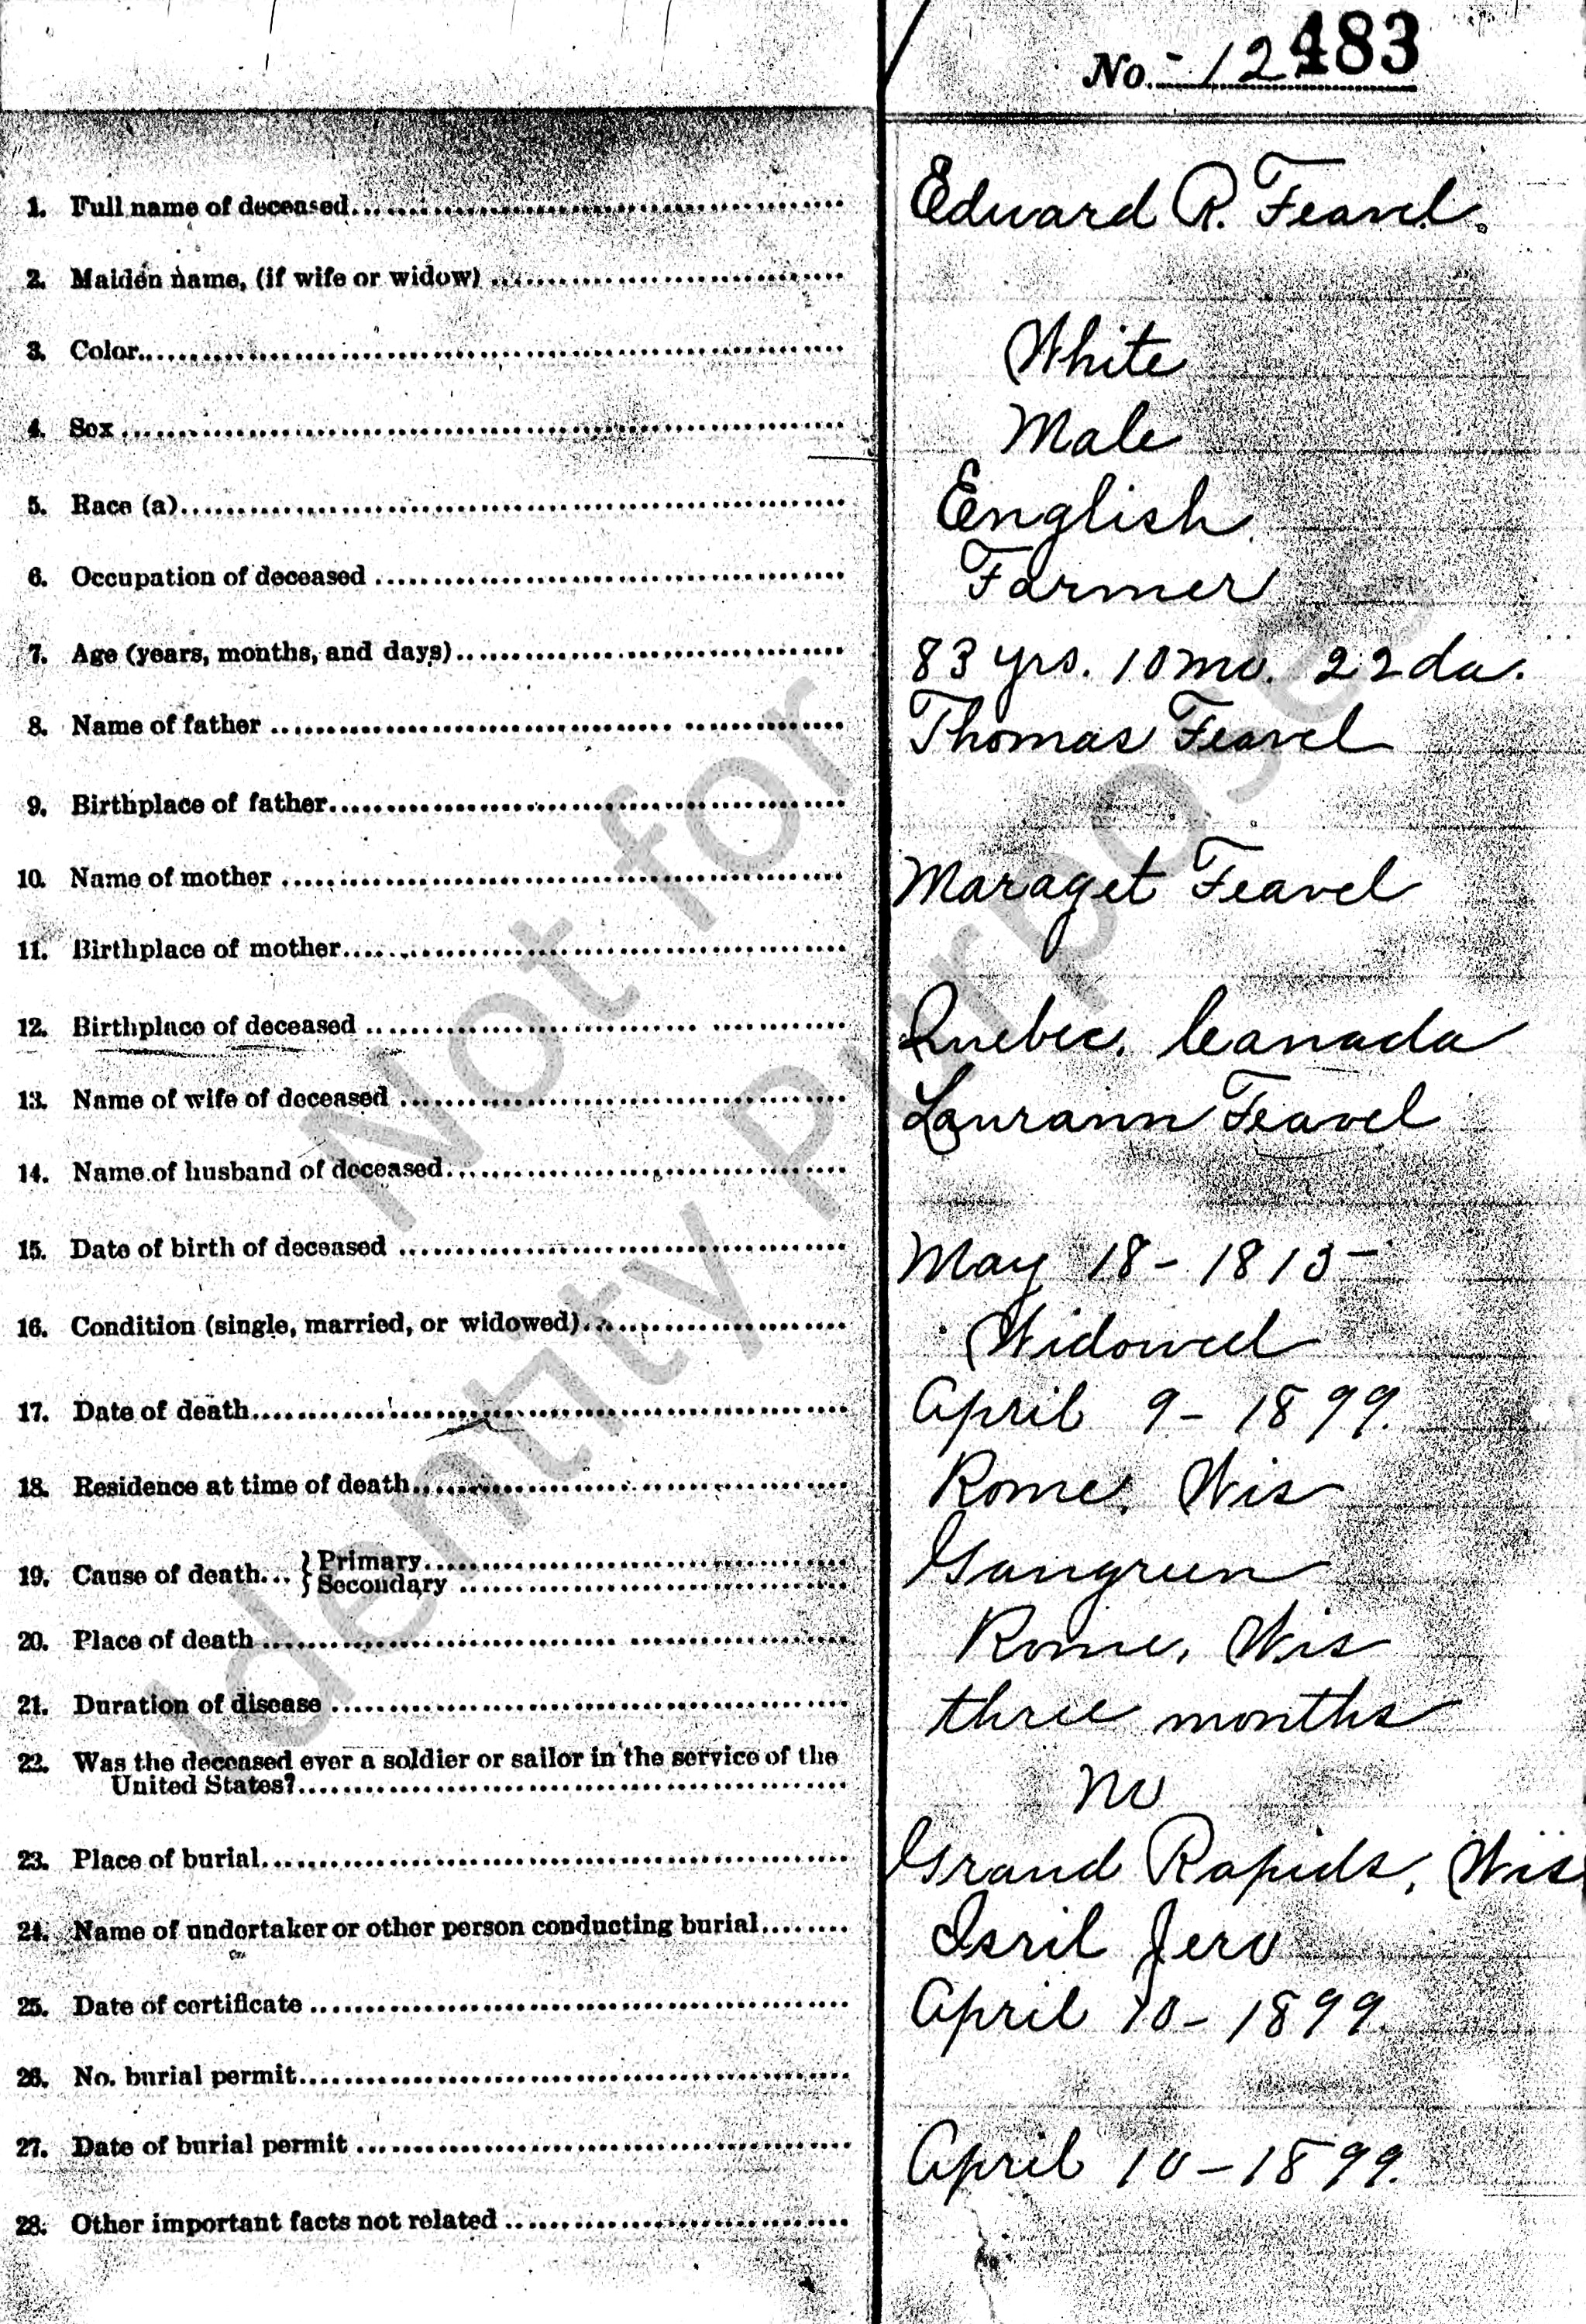 No. 12 483
1. Full name of deceased Edward R. Feavel.
2. Maiden name, (if wife or widow)
3. Color White
4. Sex Male
5. Race (a) English
6. Occupation of deceased Farmer
7. Age (years, months, and days) 83 yrs. 10 mo. 22 da.
8. Name of father Thomas Feavel
9. Birthplace of father
10. Name of mother Maraget Feavel
11. Birthplace of mother
12. Birthplace of deceased Quebec, Canada
13. Name of wife of deceased Laurann Feavel
14. Name of husband of deceased
15. Date of birth of deceased May 18 - 1815
16. Condition (single, married, or widowed) Widowed
17. Date of death April 9 - 1899.
18. Residence at time of death Rome, Wis
19. Cause of death... } Primary Gangreen
Secondary
20. Place of death Rome, Wis
21. Duration of disease three months
22. Was the deceased ever a soldier or sailor in the service of the
United States? no
23. Place of burial Grand Rapids, Wis
24. Name of undertaker or other person conducting burial Isril Jero
25. Date of certificate April 10 - 1899.
26. No. burial permit
27. Date of burial permit April 10 - 1899.
28. Other important facts not related
Not for
Identity Purposes